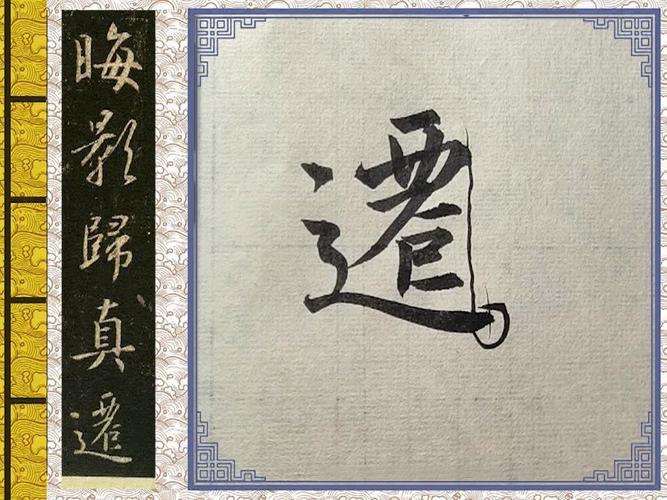 晦影歸真遷
遷